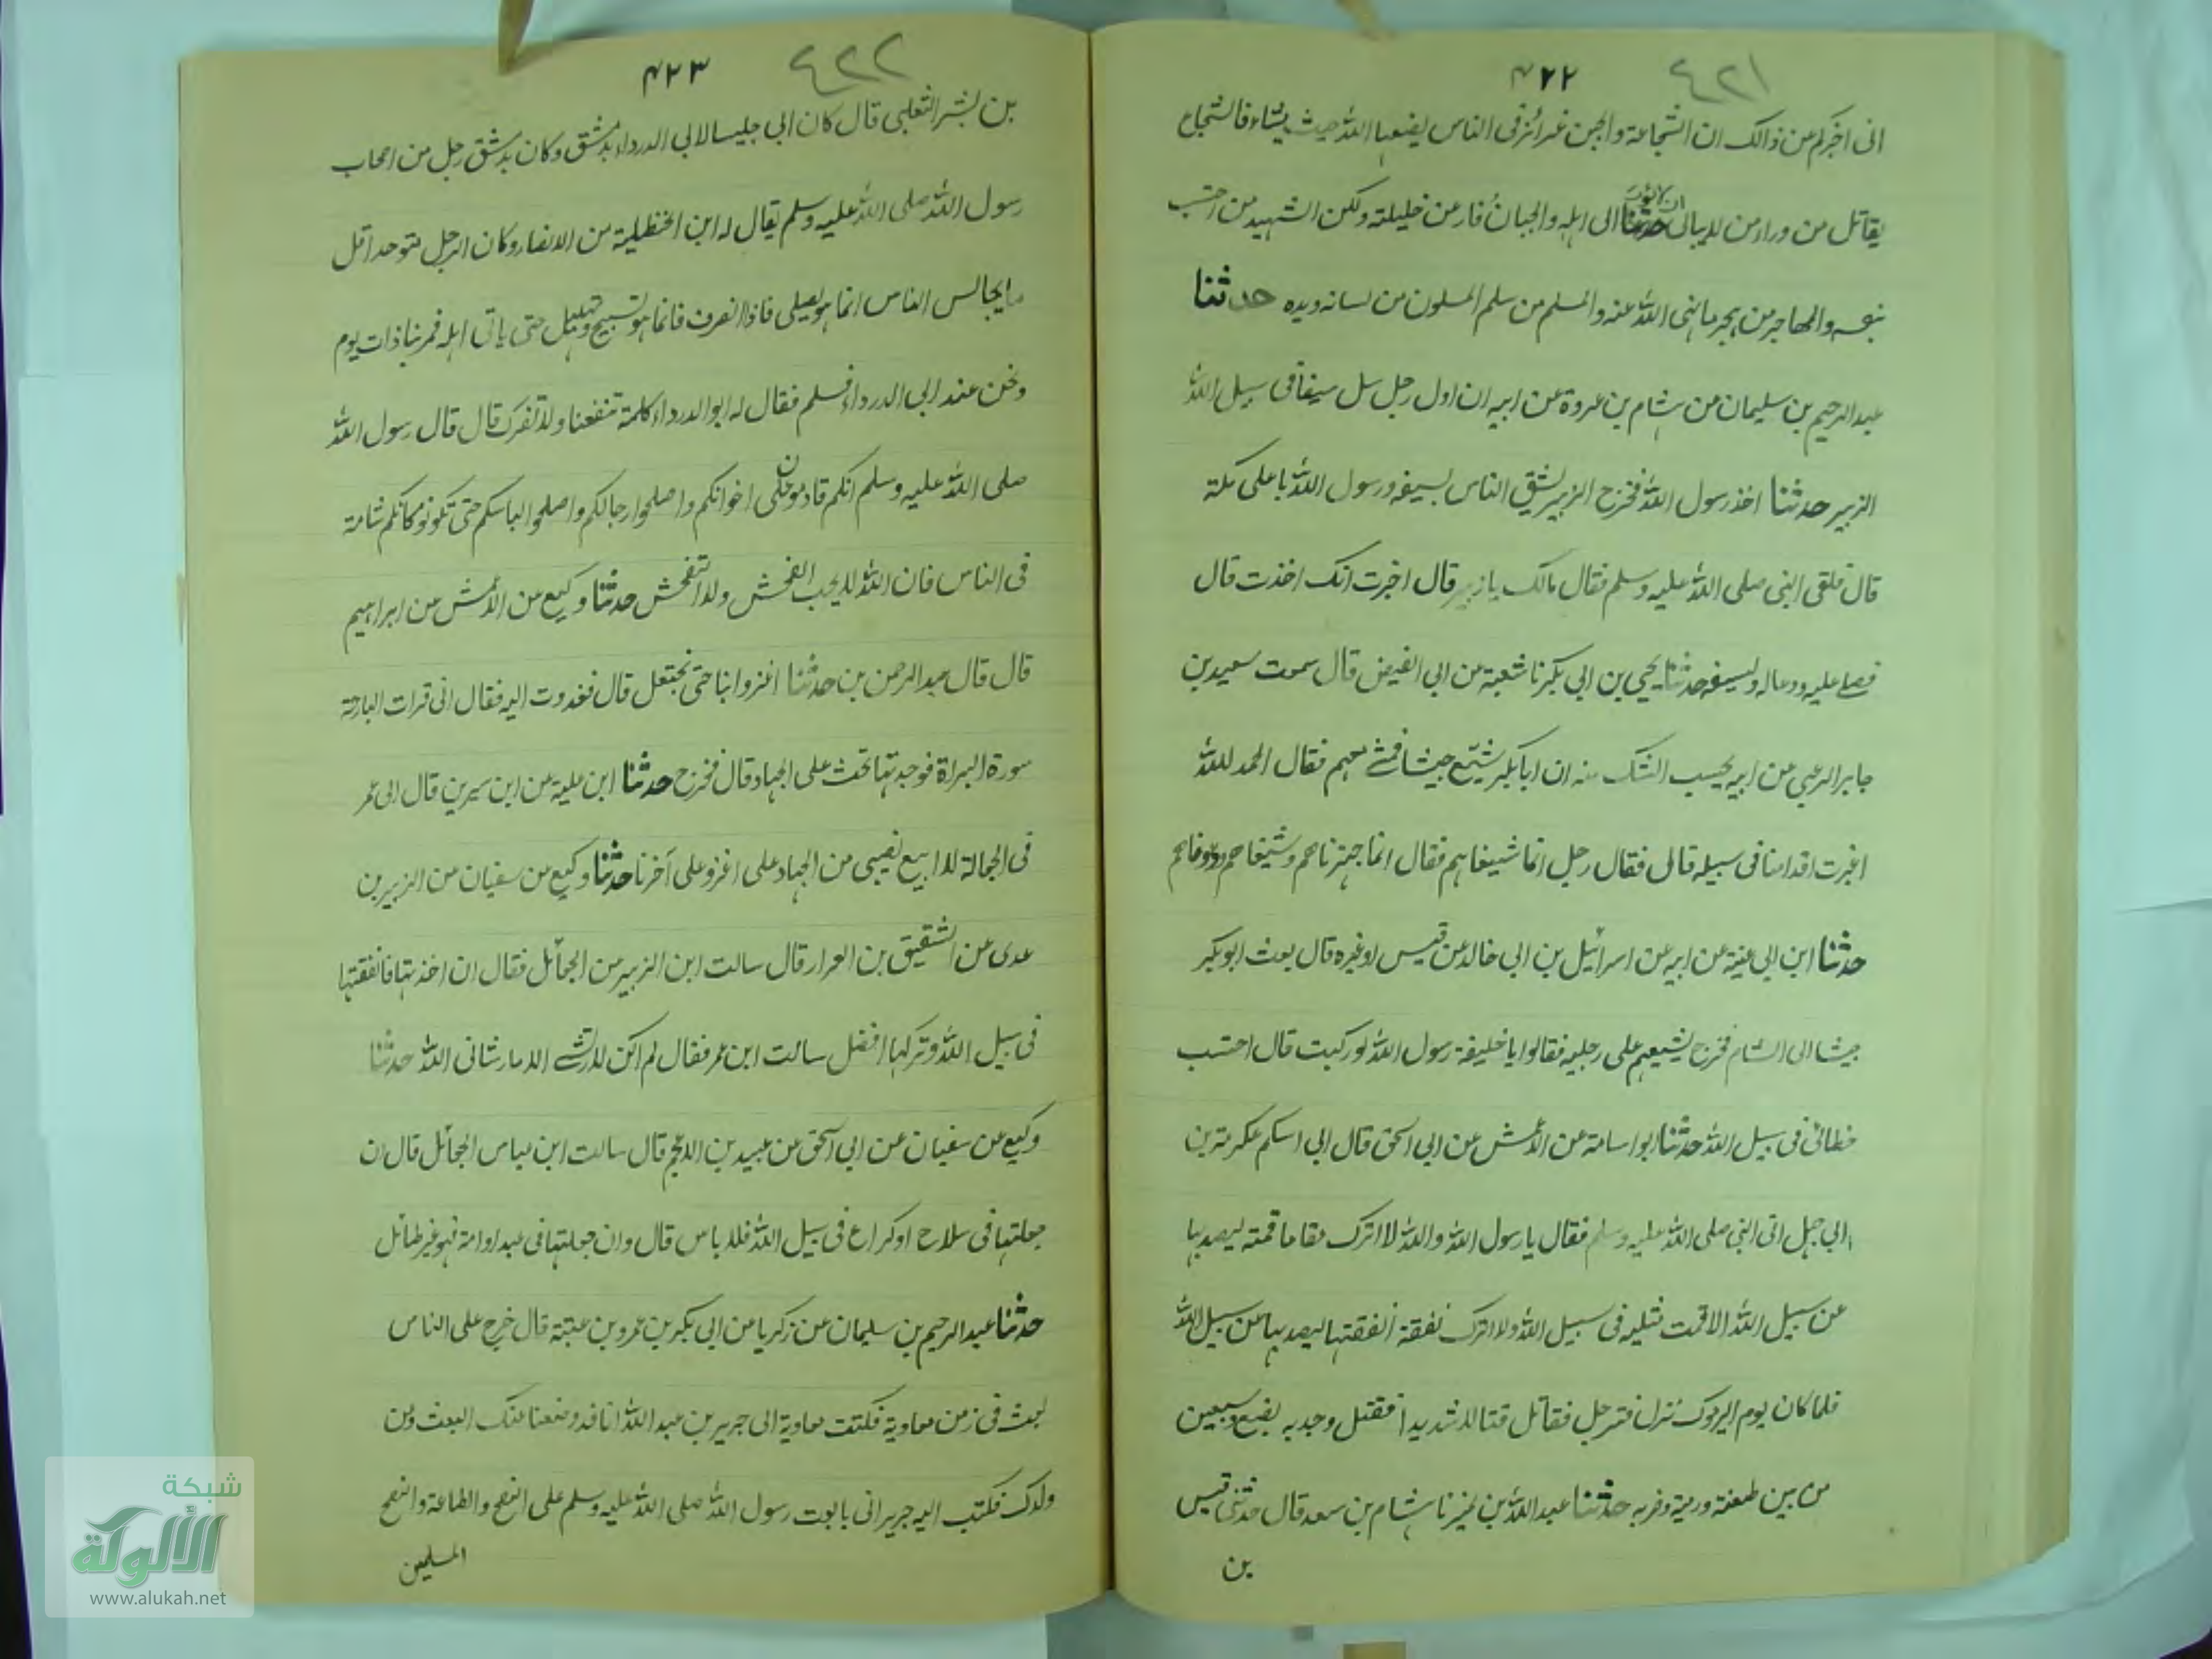 ٤٢١ ۴۲۲
انى اخبركم عن ذالك ان الشجاعة والجبن غرائز فى الناس يضعها الله حيث يشاء فالشجاع
يقاتل من وراء من لا يبالى ان لا يؤوب الى اهله والجبان فار عن خليلته ولكن الشهيد من احتسب
بنفسه والمهاجر من هجر ما نهى الله عنه والمسلم من سلم المسلمون من لسانه ويده حدثنا
عبد الرحيم بن سليمان عن هشام بن عروة عن ابيه ان اول رجل سل سيفا فى سبيل الله
الزبير حدثنا اخذ رسول الله فخرج الزبير يشق الناس بسيفه ورسول الله باعلى مكة
قال فلقى النبى صلى الله عليه وسلم فقال مالك يا زبير قال اخبرت انك اخذت قال
فصلى عليه ودعا له ولسيفه حدثنا يحيى بن ابى بكير نا شعبة عن ابى الفيض قال سمعت سعيد بن
جابر الرعينى عن ابيه يحسب الشك منه ان ابا بكر شيع جيشا فمشى معهم فقال الحمد لله
اغبرت اقدامنا فى سبيله قال فقال رجل انما شيعناهم فقال انما جهزناهم وشيعناهم ودعوناهم
حدثنا ابن ابى غنية عن ابيه عن اسرائيل بن ابى خالد عن قيس او غيره قال بعث ابو بكر
جيشا الى الشام فخرج يشيعهم على رجليه فقالوا يا خليفة رسول الله لو ركبت قال احتسب
خطائى فى سبيل الله حدثنا ابو اسامة عن الاعمش عن ابى اسحق قال ابى اسلم عكرمة بن
ابى جهل اتى النبى صلى الله عليه وسلم فقال يا رسول الله والله لا اترك مقاما قمته ليصد بها
عن سبيل الله الا قمت مثليه فى سبيل الله ولا اترك نفقة انفقتها ليصد بها عن سبيل الله
فلما كان يوم اليرموك نزل فترجل فقاتل قتالا شديدا فقتل وجد به بضع وسبعين
من بين طعنة ورمية وضربه حدثنا عبد الله بن نمير نا هشام بن سعد قال حدثنى قيس
بن
٤٢٢ ۴۲۳
بن بشر التغلبى قال كان ابى جليسا لابى الدرداء بدمشق وكان بدمشق رجل من اصحاب
رسول الله صلى الله عليه وسلم يقال له ابن الحنظلية من الانصار وكان الرجل متوحدا قل
ما يجالس الناس انما هو يصلى فاذا انصرف فانما هو تسبيح وتهليل حتى ياتى اهله فمر بنا ذات يوم
ونحن عند ابى الدرداء فسلم فقال له ابو الدرداء كلمة تنفعنا ولا تضرك قال قال رسول الله
صلى الله عليه وسلم انكم قادمون على اخوانكم واصلحوا رحالكم واصلحوا لباسكم حتى تكونوا كانكم شامة
فى الناس فان الله لا يحب الفحش ولا التفحش حدثنا وكيع عن الاعمش عن ابراهيم
قال قال عبد الرحمن بن حدثنا اغزوا بنا حتى نجتعل قال فغدوت اليه فقال انى قرات البارحة
سورة البراة فوجدتها تحث على الجهاد قال فخرج حدثنا ابن علية عن ابن سيرين قال ابى عمر
فى الجعالة لا ابيع نصيبى من الجهاد على اغزو على آخرنا حدثنا وكيع عن سفيان عن الزبير بن
عدى عن الشقيق بن العرار قال سالت ابن الزبير عن الجعائل فقال ان اخذتها فانفقتها
فى سبيل الله وتركها افضل سالت ابن عمر فقال لم اكن لارتشى الا ما رشانى الله حدثنا
وكيع عن سفيان عن ابى اسحق عن عبيد بن الاعجم قال سالت ابن عباس الجعائل قال ان
جعلتها فى سلاح او كراع فى سبيل الله فلا باس قال وان جعلتها فى عبد او امة فهو غير طائل
حدثنا عبد الرحيم بن سليمان عن زكريا عن ابى بكر بن عمرو بن عتبة قال خرج على الناس
بعث فى زمن معاوية فكتب معاوية الى جرير بن عبد الله انا قد وضعنا عنك البعث وعن
ولدك فكتب اليه جرير انى بايعت رسول الله صلى الله عليه وسلم على السمع والطاعة والنصح
المسلمين
شبكة
الألوكة
www.alukah.net